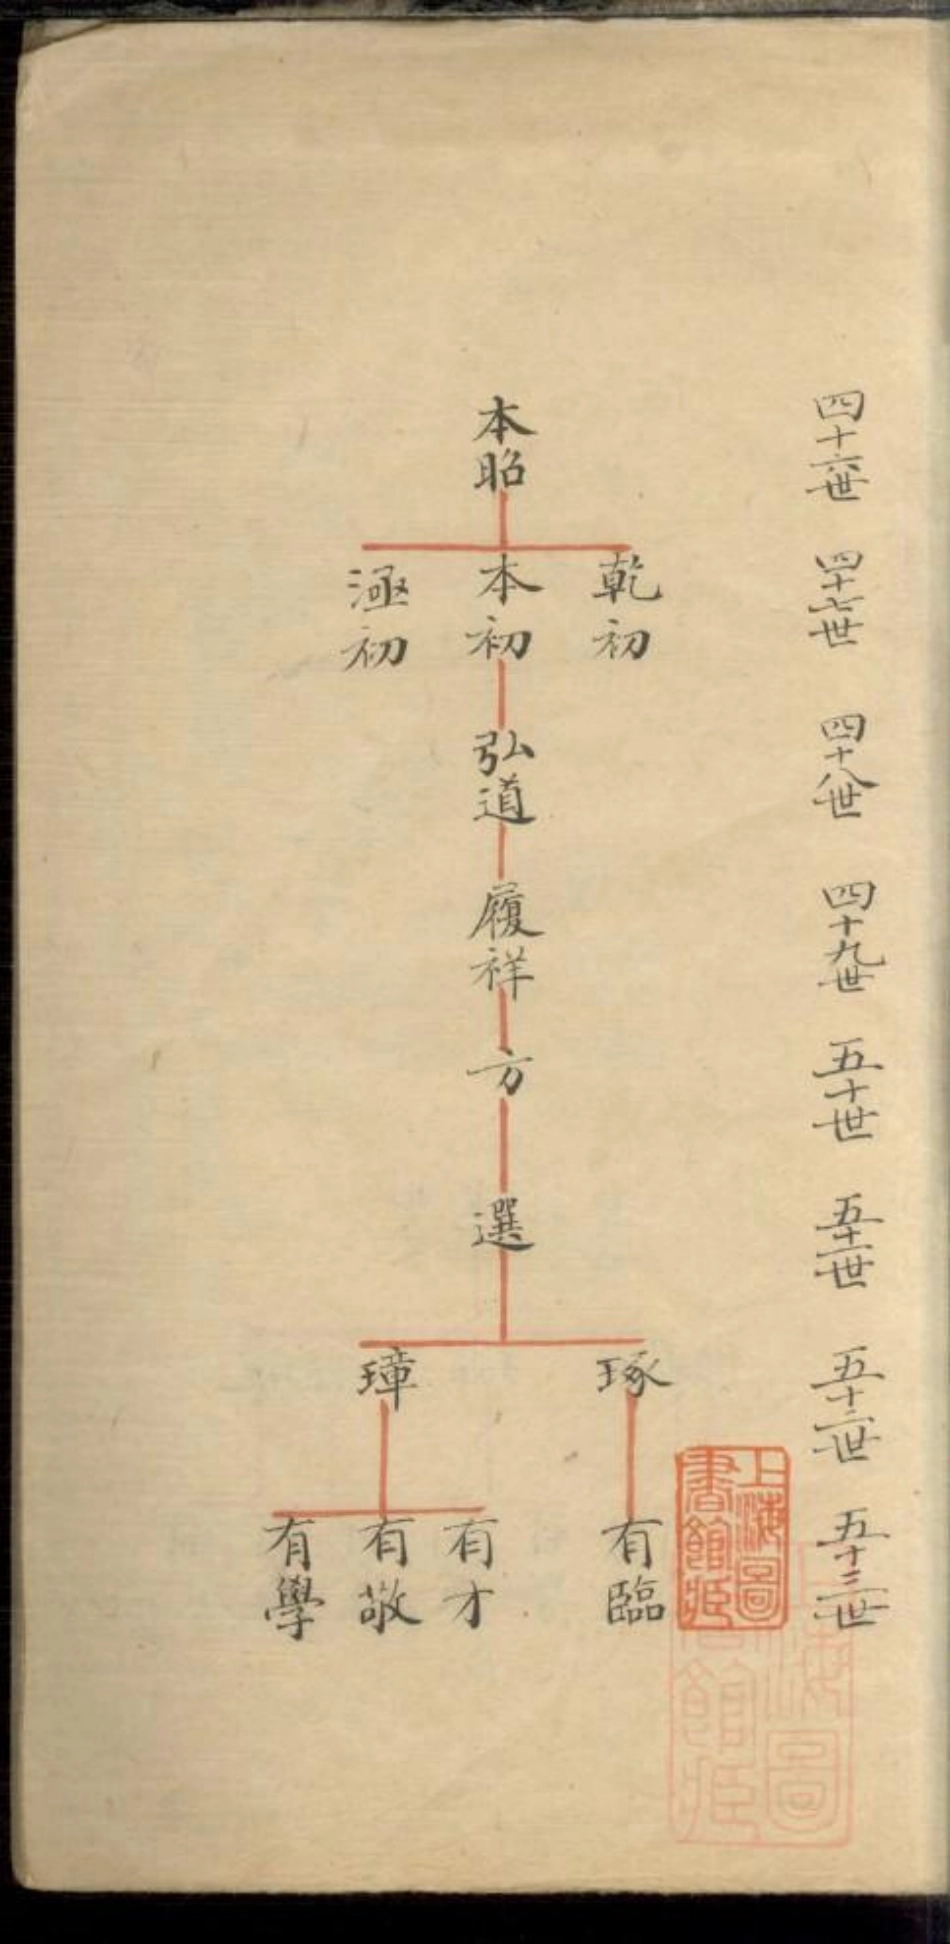 四十六世
四十七世
四十八世
四十九世
五十世
五十一世
五十二世
五十三世
本昭
乾初
本初
極初
弘道
履祥
方
選
琢
璋
有臨
有才
有敬
有學
上海圖
書館藏
海圖
館藏